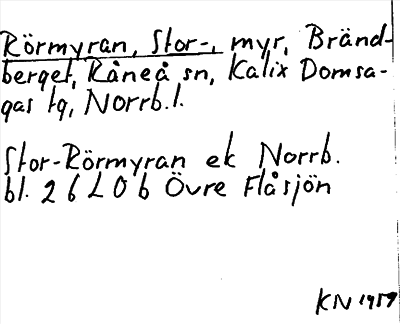 Rörmyran, Stor-, myr, Bränd-
berget, Råneå sn, Kalix Domsa-
gas tg, Norrb.l.
Stor-Rörmyran ek Norrb.
bl. 26L0b Övre Flåsjön
KN 1959